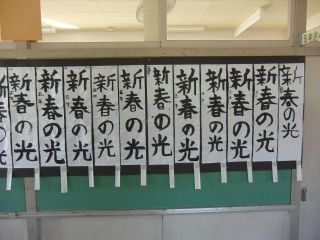 新春の光
新春の光
新春の光
新春の光
新春の光
新春の光
新春の光
新春の光
新春の光
新春の光
新春の光
新春の光